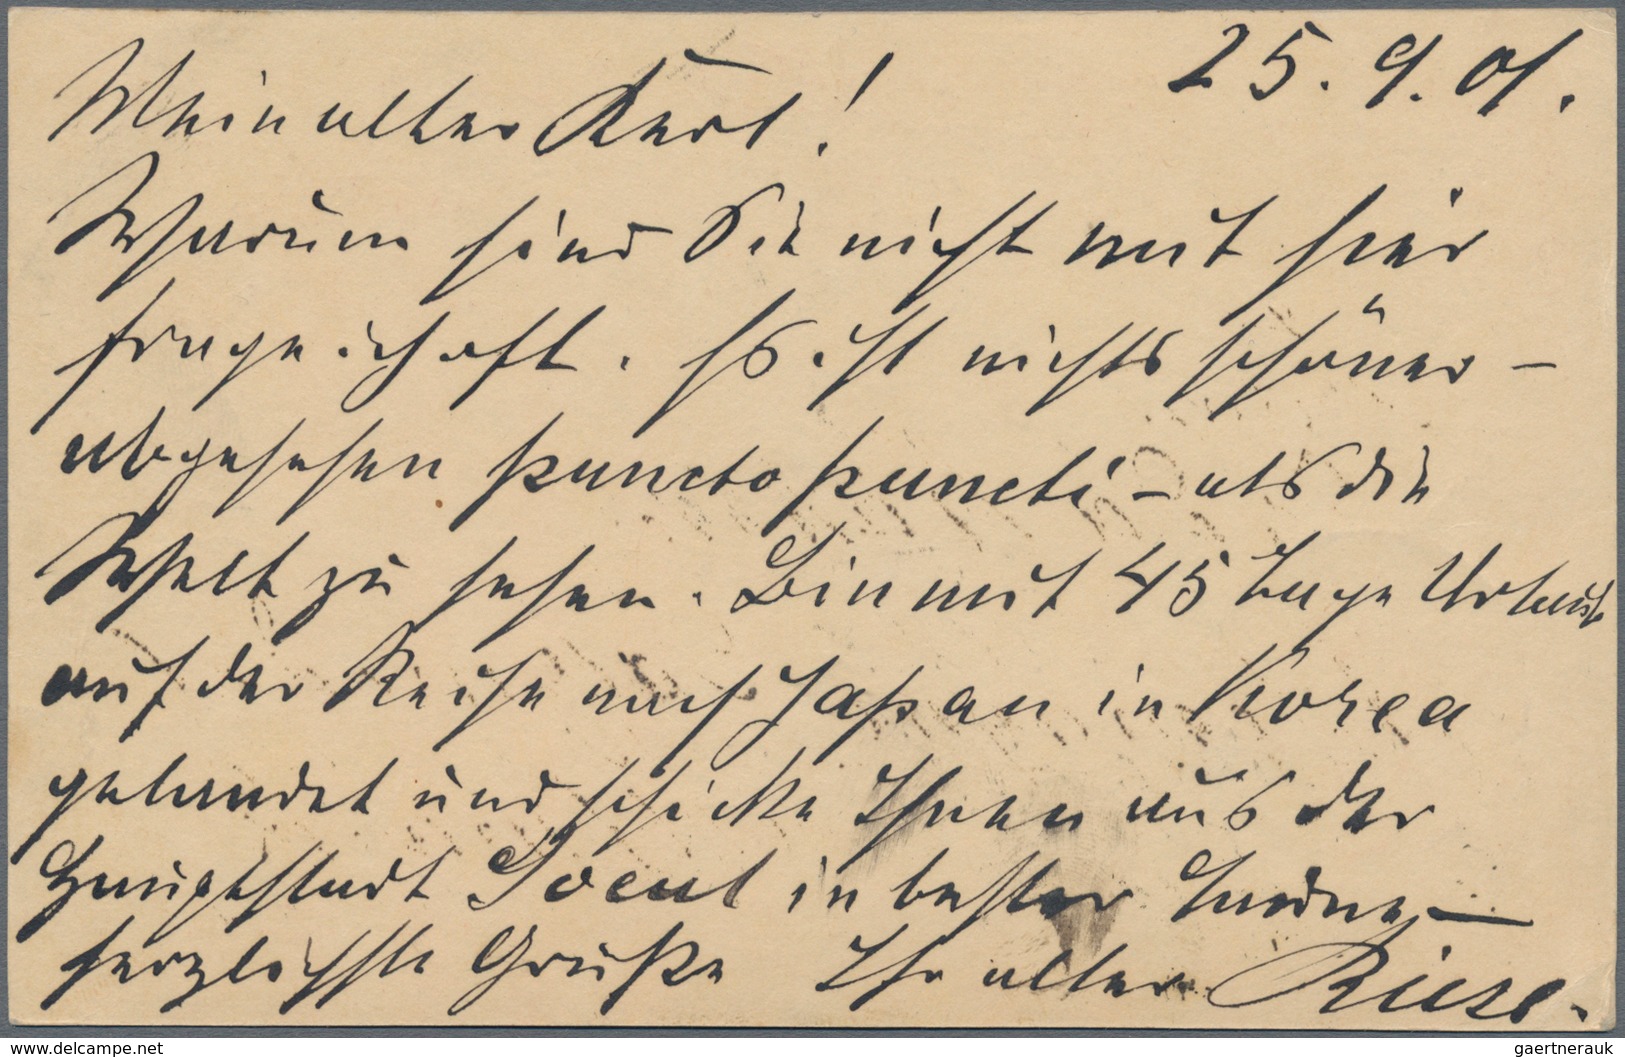 25.9.01.
Mein alter Kerl!
Warum sind Sie nicht mit hier
frage ich oft. Es ist nichts schöner –
abgesehen puncto puncti – als die
Welt zu sehen. Bin mit 45 Tage Urlaub
auf der Reise nach Japan in Korea
gelandet und schicke Ihnen aus der
Hauptstadt Soeul in bester
herzlichste Grüße Ihr alter
www.delcampe.net
gaertnerauk